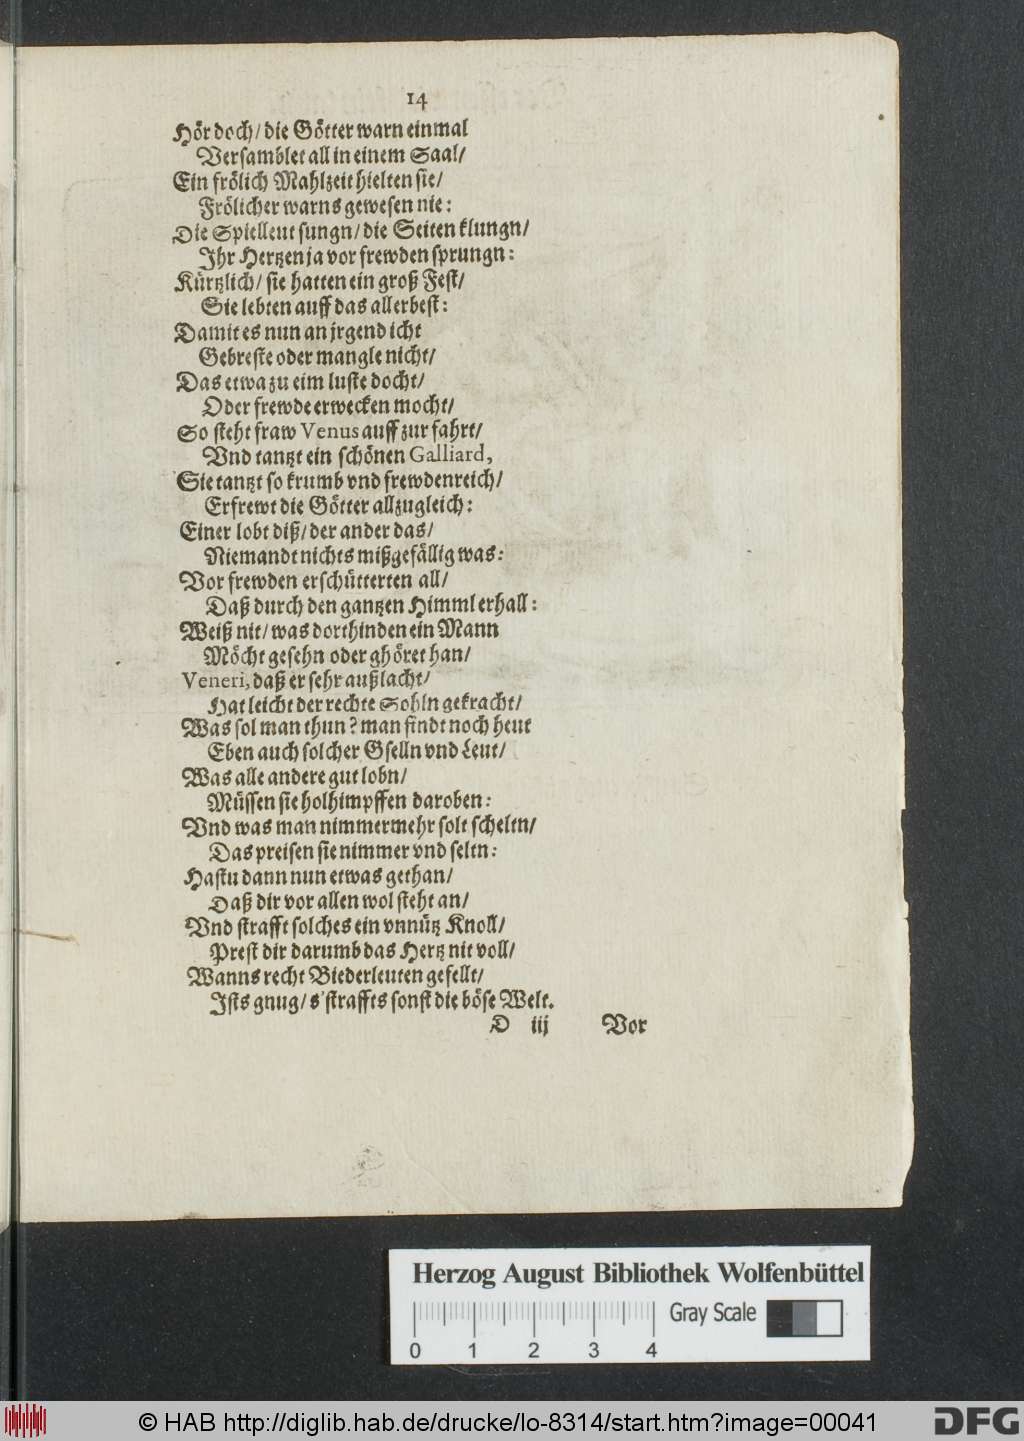 14
Hör doch/ die Götter warn einmal
Versamblet all in einem Saal/
Ein frölich Mahlzeit hielten sie/
Frölicher warns gewesen nie:
Die Spielleut sungn/ die Seiten klungn/
Jhr Hertzen ja vor frewden sprungn:
Kürtzlich/ sie hatten ein groß Fest/
Sie lebten auff das allerbest:
Damit es nun an jrgend icht
Gebreste oder mangle nicht/
Das etwa zu eim luste docht/
Oder frewde erwecken mocht/
So steht fraw Venus auff zur fahrt/
Vnd tantzt ein schönen Galliard,
Sie tantzt so krumb vnd frewdenreich/
Erfrewt die Götter allzugleich:
Einer lobt diß/ der ander das/
Niemandt nichts mißgefällig was:
Vor frewden erschütterten all/
Daß durch den gantzen Himml erhall:
Weiß nit/ was dorthinden ein Mann
Möcht gesehn oder ghöret han/
Veneri, daß er sehr außlacht/
Hat leicht der rechte Sohln gekracht/
Was sol man thun? man findt noch heut
Eben auch solcher Gselln vnd Leut/
Was alle andere gut lobn/
Müssen sie holhimpffen daroben:
Vnd was man nimmermehr solt scheltn/
Das preisen sie nimmer vnd seltn:
Hastu dann nun etwas gethan/
Daß dir vor allen wol steht an/
Vnd strafft solches ein vnnütz Knoll/
Prest dir darumb das Hertz nit voll/
Wanns recht Biederleuten gefellt/
Jsts gnug/ s'straffts sonst die böse Welt.
D iij Vor
Herzog August Bibliothek Wolfenbüttel
Gray Scale
0 1 2 3 4
© HAB http://diglib.hab.de/drucke/lo-8314/start.htm?image=00041
DFG